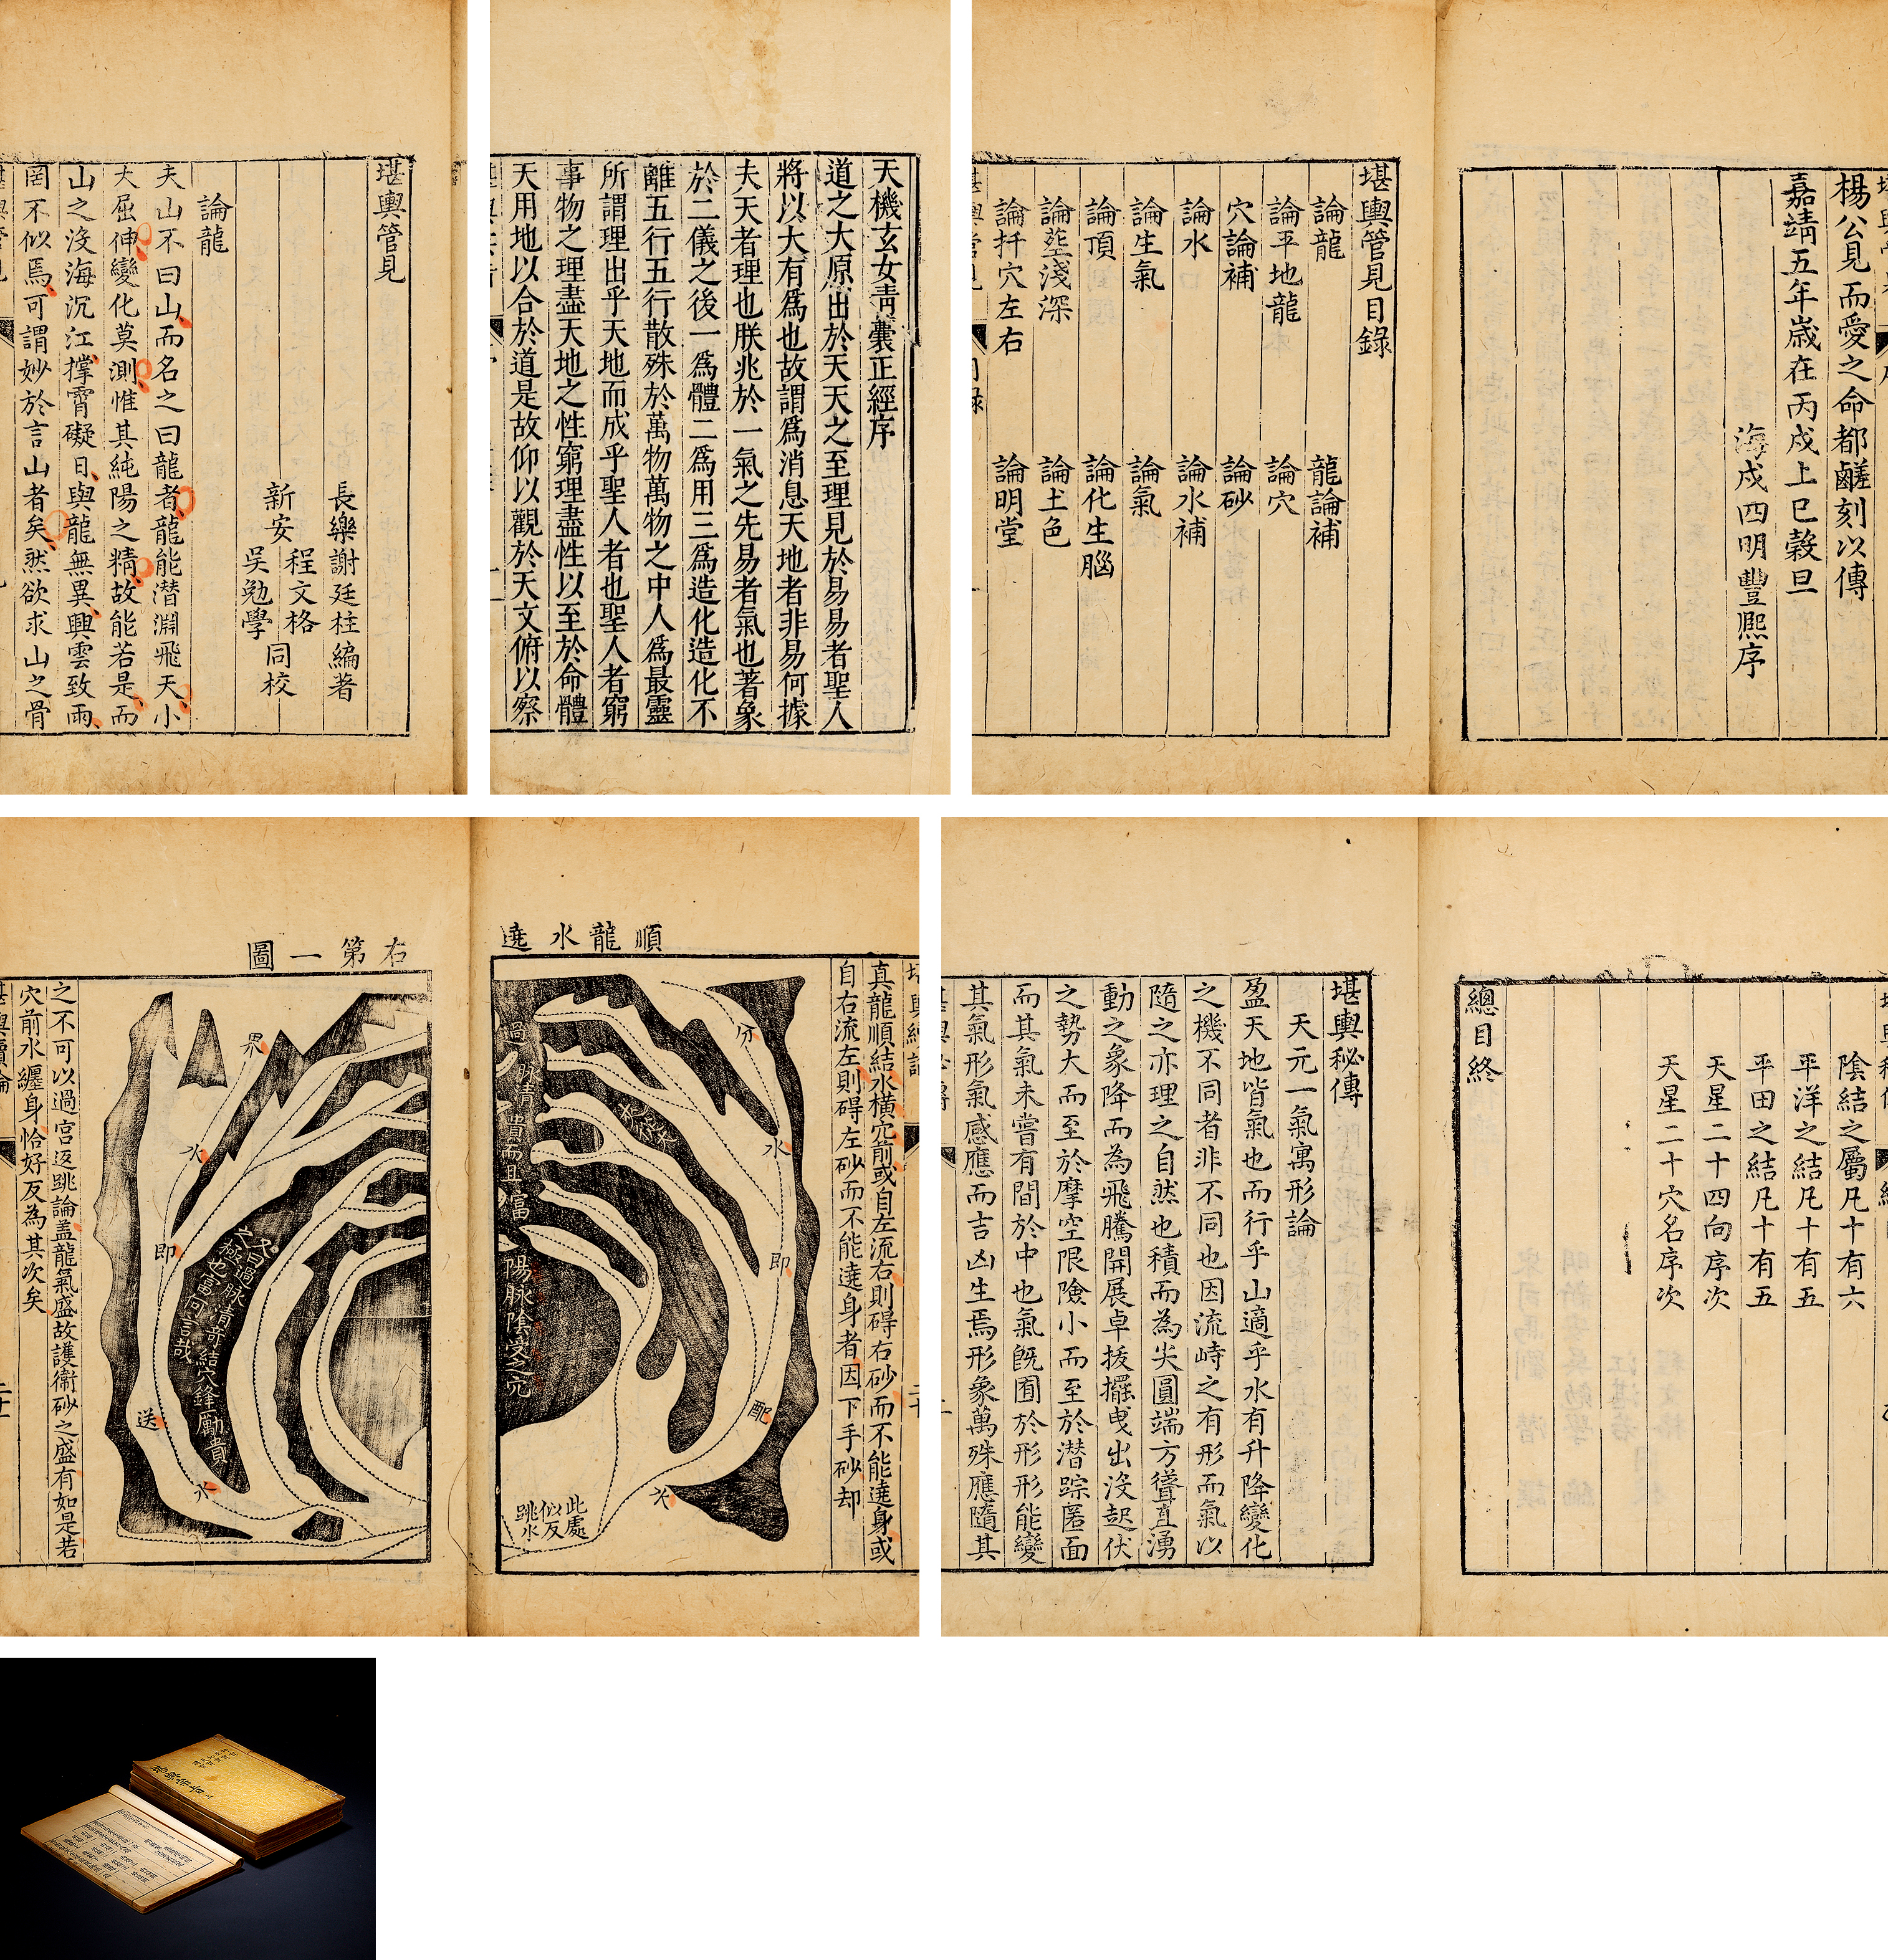 堪輿管見
長樂謝廷柱編著
新安
程文格
吳勉學
同校
論龍
夫山不曰山而名之曰龍者龍能潛淵飛天小
大屈伸變化莫測惟其純陽之精故能若是而
山之沒海沉江撑霄礙日與龍無異興雲致雨
罔不似焉可謂妙於言山者矣然欲求山之骨
天機玄女青囊正經序
道之大原出於天天之至理見於易易者聖人
將以大有為也故謂為消息天地者非易何據
夫天者理也朕兆於一氣之先易者氣也著象
於二儀之後一為體二為用三為造化造化不
離五行五行散殊於萬物萬物之中人為最靈
所謂理出乎天地而成乎聖人者也聖人者窮
事物之理盡天地之性窮理盡性以至於命體
天用地以合於道是故仰以觀於天文俯以察
楊公見而愛之命都鹺刻以傳
嘉靖五年歲在丙戌上巳穀旦
海戍四明豐熈序
堪輿管見目錄
論龍
龍論補
論平地龍
論穴
穴論補
論砂
論水
論水補
論生氣
論氣
論頂
論化生腦
論塟淺深
論土色
論扦穴左右
論明堂
順龍水遶
真龍順結水橫穴前或自左流右則碍右砂而不能遶身或
自右流左則碍左砂而不能遶身者因下手砂却
分
水
即
配
水
過脉清貴而且福
陽脉陰受之穴
此處
似反
跳水
右第一圖
界
水
即
送
水
又自過脉清奇結穴鋒勵貴
之極也富何言哉
之不可以過宮返跳論盖龍氣盛故護衛砂之盛有如是若
穴前水纏身恰好反為其次矣
陰結之屬凡十有六
平洋之結凡十有五
平田之結凡十有五
天星二十四向序次
天星二十穴名序次
總目終
堪輿秘傳
天元一氣寓形論
盈天地皆氣也而行乎山適乎水有升降變化
之機不同者非不同也因流峙之有形而氣以
隨之亦理之自然也積而為尖圓端方聳直湧
動之象降而為飛騰開展卓拔擺曳出沒起伏
之勢大而至於摩空限險小而至於潛踪匿面
而其氣未嘗有間於中也氣旣囿於形形能變
其氣形氣感應而吉凶生焉形象萬殊應隨其